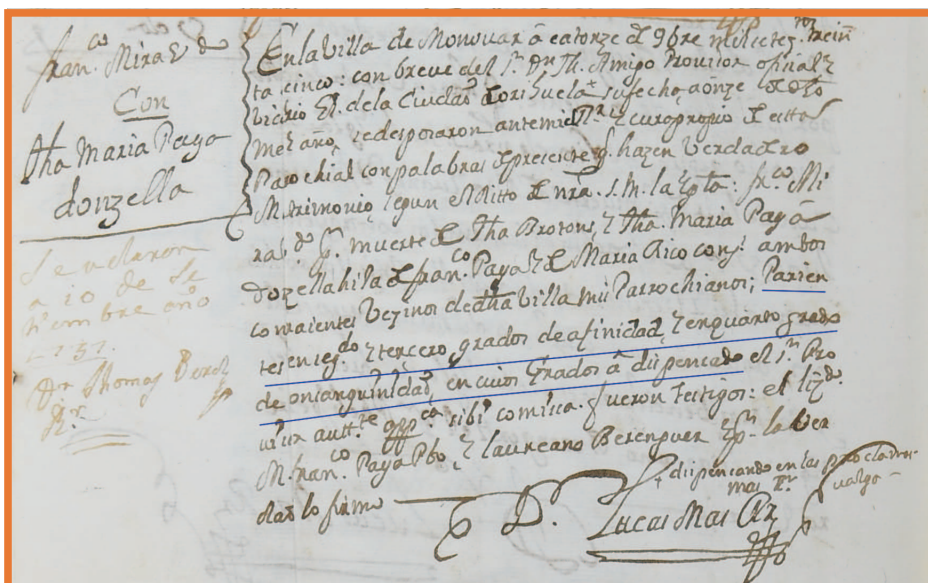 fran.co Mira V.do
Con
Tha Maria Paya
donzella
Se velaron
a 10 de Se
tiembre año
1737.
Dr. Thomas Perez
Rr.
En la Villa de Monovar â catorze d 9bre mil setez.tos trein
ta cinco: con breve del S.r D.r Amigo Provisor ofiziâl y
Vicario de la Ciudad d Orihuela + su fecho a onze d dho
mes año, se desposaron ante mi y cura proprio d esta
Parochial con palabras d presente q. hazen Verdadero
Matrimonio segun el Ritto d nra. S. M. la Ygta: fr.co Mi
ra V.do p.r muerte d Tha Brotons, y Tha. Maria Payâ
donzella hija d fran.co Paya y d Maria Rico cons. ambos
Vezinos de dha Villa mis Parrochianos; Parien
tes en seg.do y tercero grados de afinidad, y en quarto grado
de consanguinidad, en cuios Grados â dispensado el S.r Pro
visor autt.te app.ca fueron testigos: el liz.do
M. fran.co Paya Pbo, y laureano Berenguer y p.r la ver
dad lo firmo
+ dispensando en las proclamas
valga
D. Lucas Mas